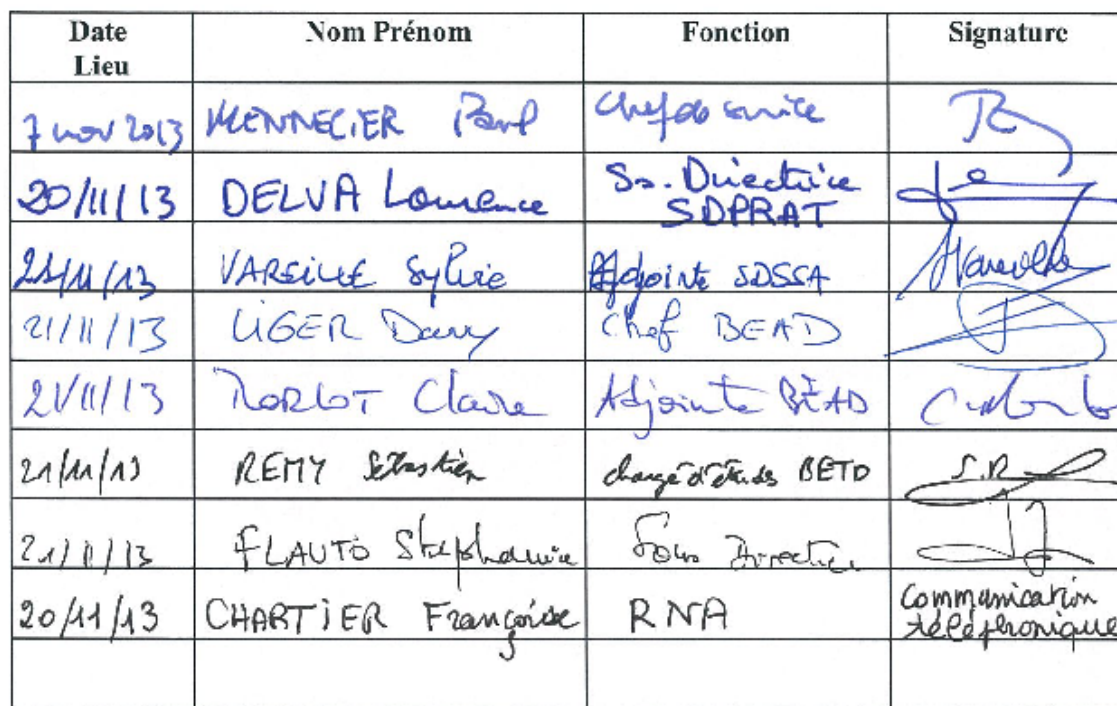 Date
Lieu
Nom Prénom
Fonction
Signature
7 nov 2013 MENNECIER Paul Chef de service
20/11/13 DELVA Laurence Ss. Directrice
SDPRAT
21/11/13 VAREILLE Sylvie Adjointe SDSSA
21/11/13 LIGER Dany Chef BEAD
21/11/13 Claire Adjointe BEAD
21/11/13 REMY Sébastien chargé d'études BETD S.R
21/11/13 FLAUTO Stéphanie Sous
20/11/13 CHARTIER Françoise RNA Communication
téléphonique